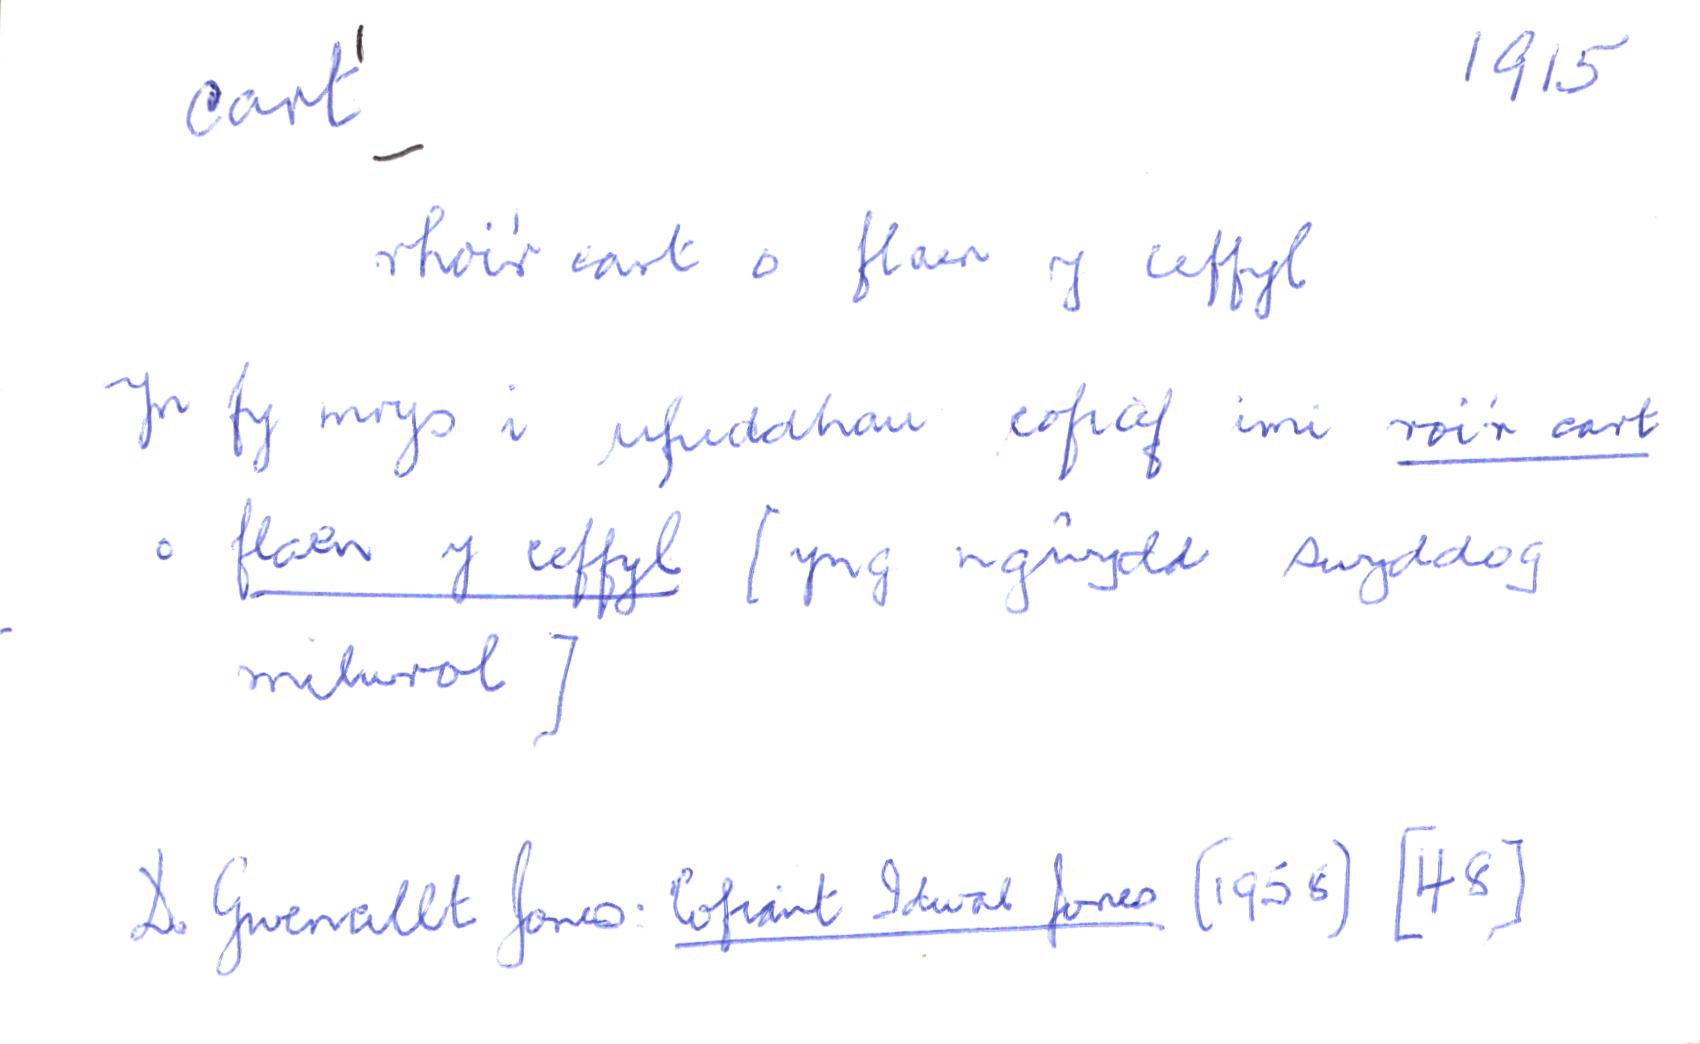 cart¹ 1915
rhoi'r cart o flaen y ceffyl
Yn fy mrys i ufuddhau cofiaf imi roi'r cart
o flaen y ceffyl [yng ngŵydd swyddog
milwrol]
D. Gwenallt Jones: Cofiant Idwal Jones (1958) [48]